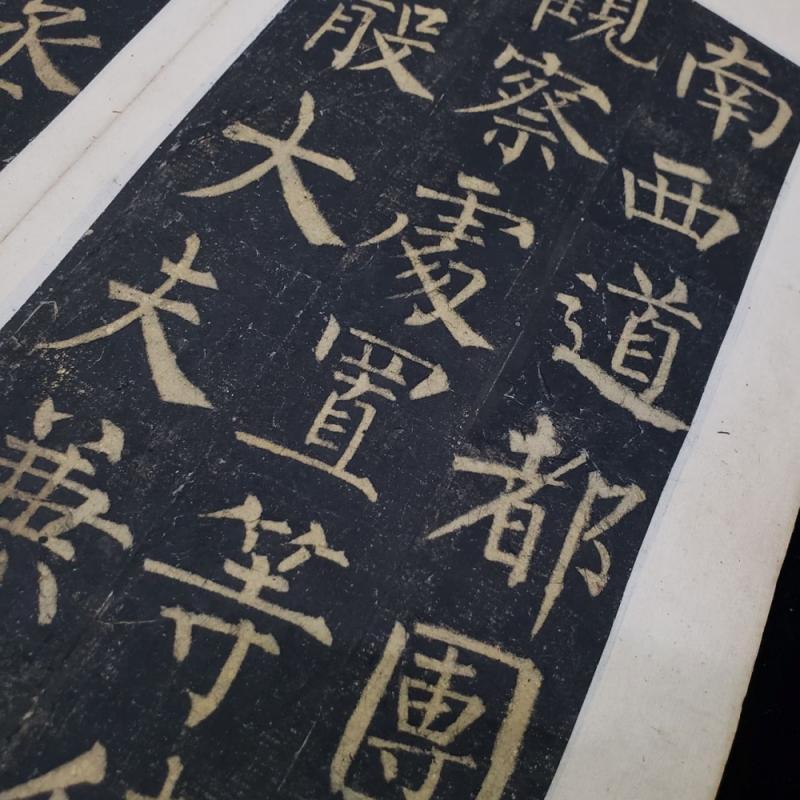 南西道都團
觀察處置等
殷大夫兼